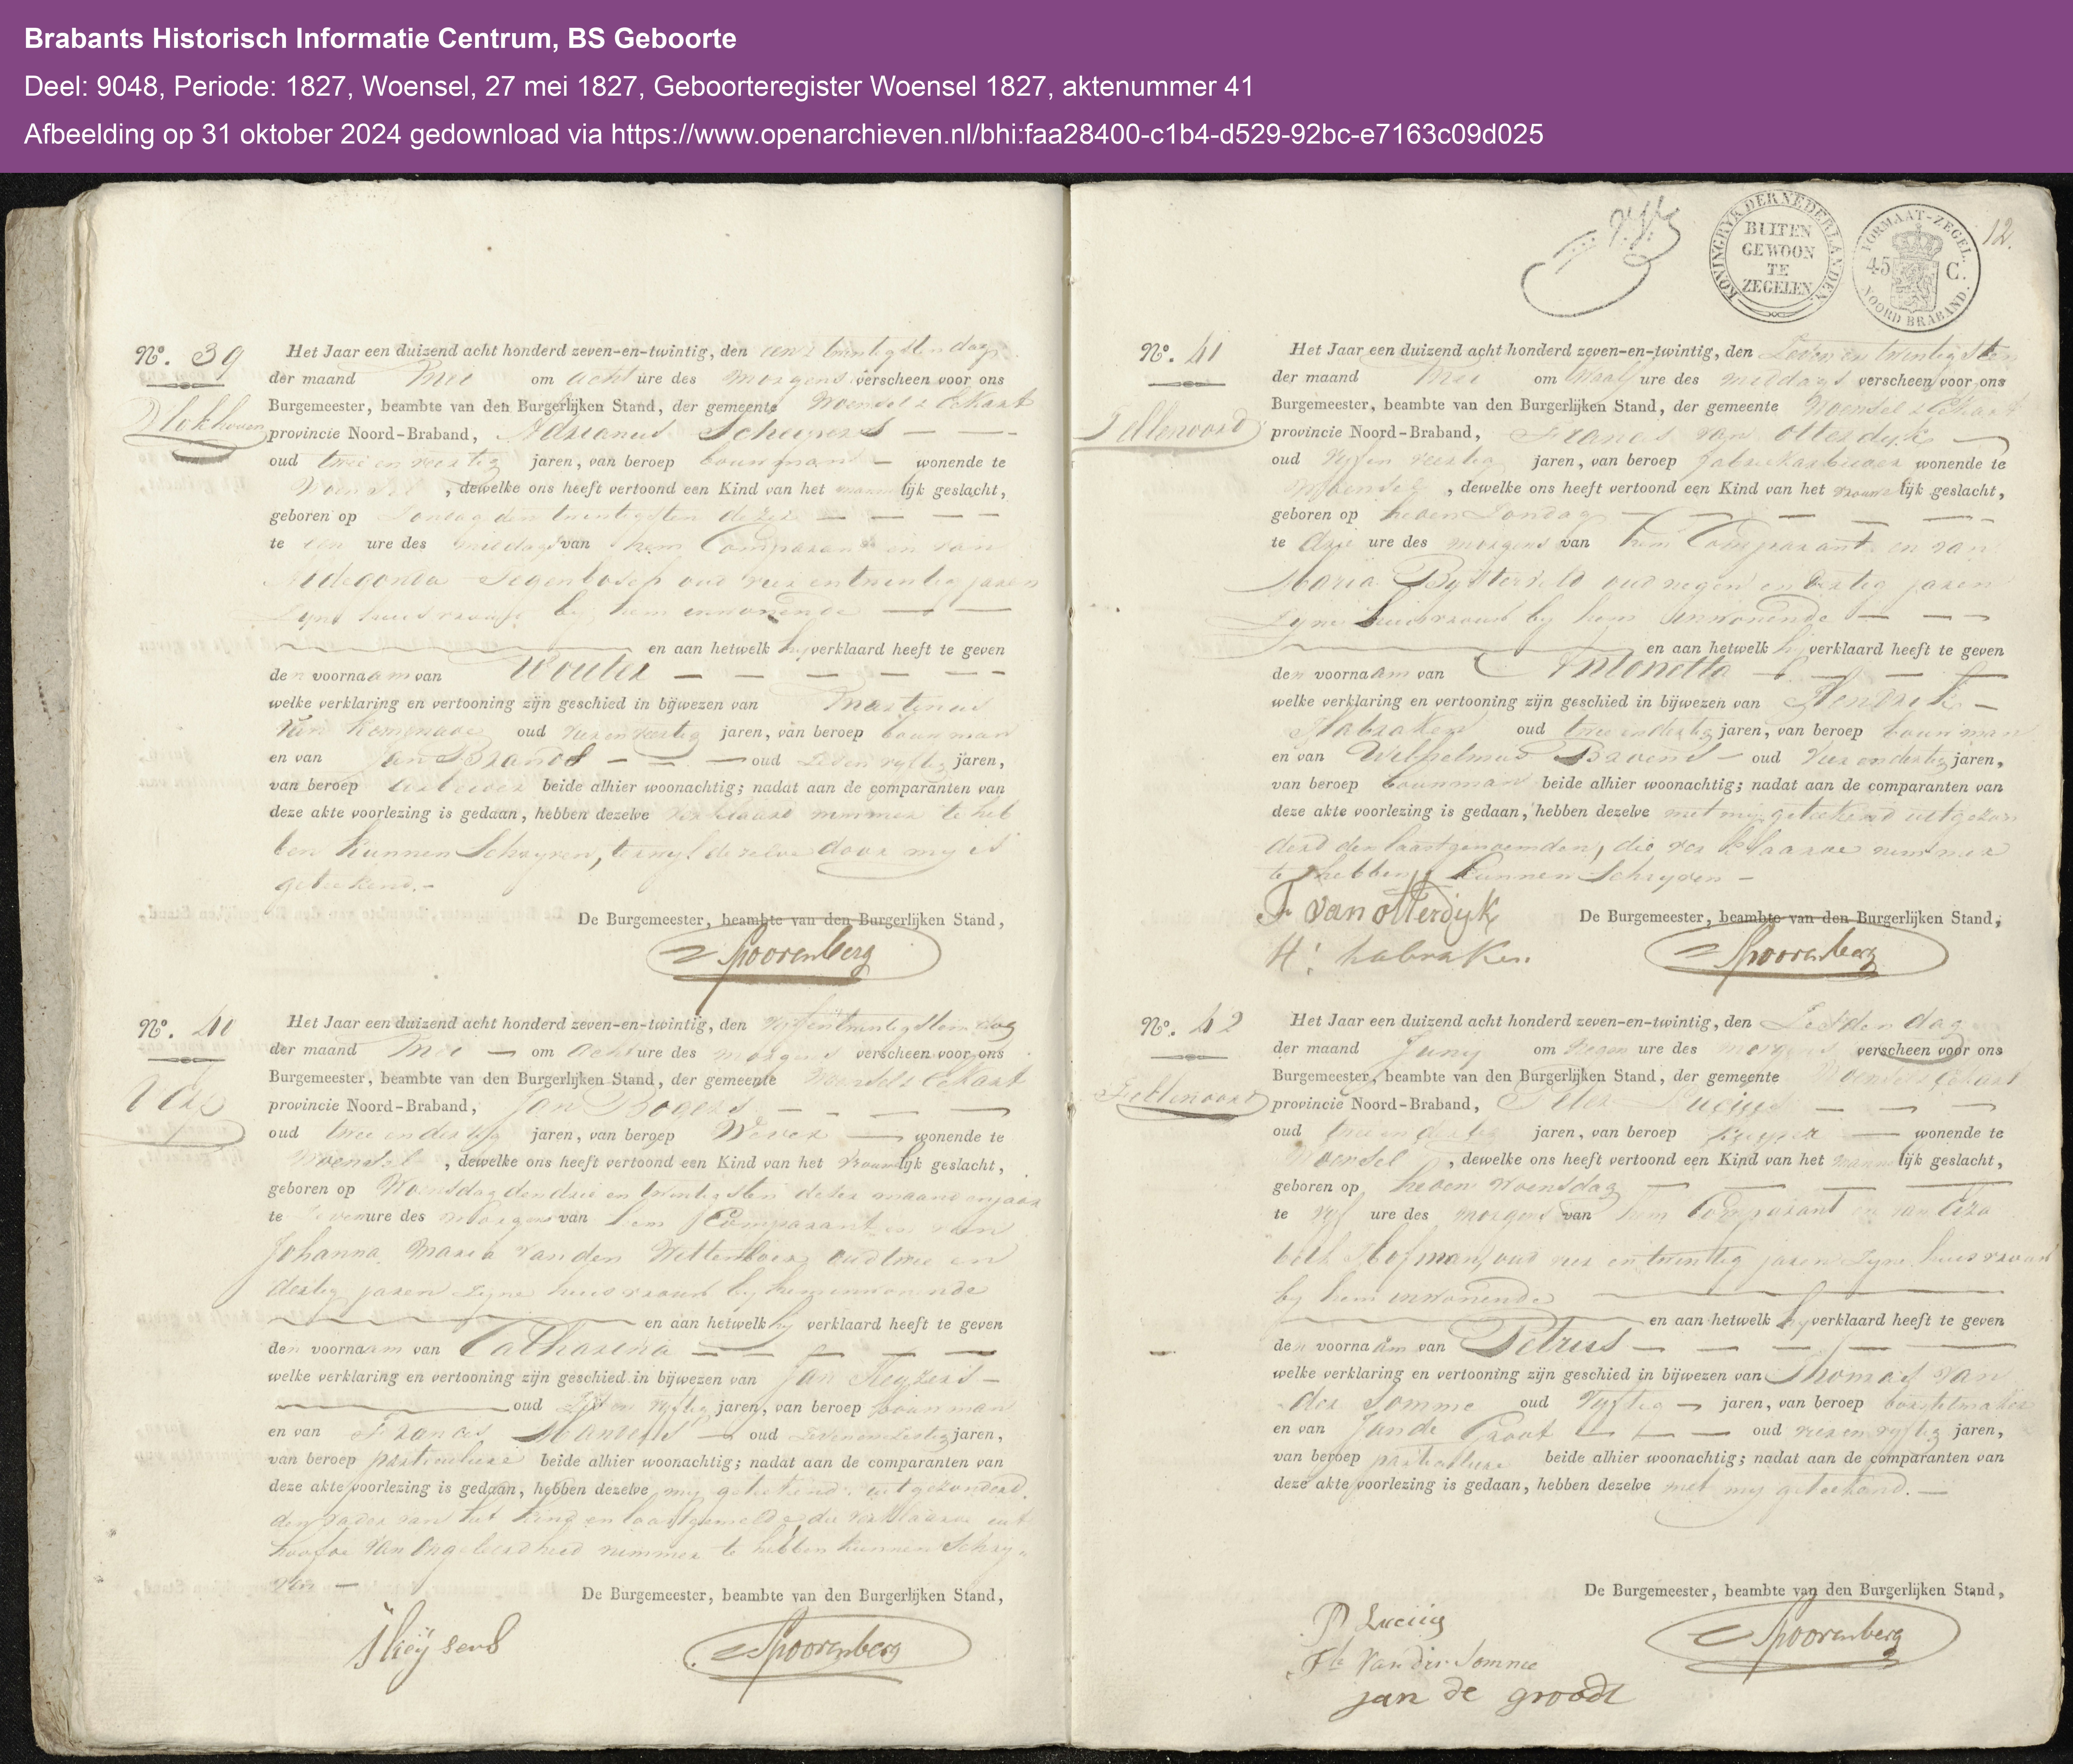 Brabants Historisch Informatie Centrum, BS Geboorte
Deel: 9048, Periode: 1827, Woensel, 27 mei 1827, Geboorteregister Woensel 1827, aktenummer 41
Afbeelding op 31 oktober 2024 gedownload via https://www.openarchieven.nl/bhi:faa28400-c1b4-d529-92bc-e7163c09d025
Nº. 39
Vlokhoven
Het Jaar een duizend acht honderd zeven-en-twintig, den een & twintigsten dag
der maand Mei om acht ure des morgens verscheen voor ons
Burgemeester, beambte van den Burgerlijken Stand, der gemeente Woensel & Eckart
provincie Noord-Braband, Adrianus Scheepers
oud twee en veertig jaren, van beroep bouwman wonende te
Woensel, dewelke ons heeft vertoond een Kind van het mannelijk geslacht,
geboren op Zondag den twintigsten dezer
te een ure des middags van hem Comparant en van
Aldegonda Segenbosch oud vier en twintig jaren
zyne huisvrouw by hem inwonende
en aan hetwelk hy verklaard heeft te geven
den voornaam van Wouter
welke verklaring en vertooning zijn geschied in bijwezen van Martinus
Van Kemenade oud vier en veertig jaren, van beroep bouwman
en van Jan Brands oud zeven vyftig jaren,
van beroep arbeider beide alhier woonachtig; nadat aan de comparanten van
deze akte voorlezing is gedaan, hebben dezelve verklaard nimmer te heb
ben kunnen Schryven, terwyl dezelve door my is
getekend.-
De Burgemeester, beambte van den Burgerlijken Stand,
Spoorenberg
Nº. 40
Het Jaar een duizend acht honderd zeven-en-twintig, den vyfentwintigsten dag
der maand Mei om acht ure des morgens verscheen voor ons
Burgemeester, beambte van den Burgerlijken Stand, der gemeente Woensel & Eckart
provincie Noord-Braband, Jan Bogers
oud twee en dertig jaren, van beroep Wever wonende te
Woensel, dewelke ons heeft vertoond een Kind van het vrouwelijk geslacht,
geboren op Woensdag den drie en twintigsten dezer maand en jaar
te zeven ure des morgens van hem Comparant en van
Johanna Maria van den Wittenboer oud twee en
dertig jaren zyne huisvrouw by hem inwonende
en aan hetwelk hy verklaard heeft te geven
den voornaam van Catharina
welke verklaring en vertooning zijn geschied in bijwezen van Jan Keyzers
oud vyftig jaren, van beroep bouwman
en van Francis oud zeven en zestig jaren,
van beroep particuliere beide alhier woonachtig; nadat aan de comparanten van
deze akte voorlezing is gedaan, hebben dezelve my getekend uitgezonderd
den vader van het Kind en laastgemelde die verklaarde uit
hoofde van Ongeleerdheid nimmer te hebben kunnen Schry
ven
De Burgemeester, beambte van den Burgerlijken Stand,
Spoorenberg
KONINGRYK DER NEDERLANDEN
BUITEN
GEWOON
TE
ZEGELEN
FORMAAT-ZEGEL.
45 C.
NOORD BRABAND.
12.
Nº. 41
Fellenoord
Het Jaar een duizend acht honderd zeven-en-twintig, den zeven en twintigsten
der maand Mei om twaalf ure des middags verscheen voor ons
Burgemeester, beambte van den Burgerlijken Stand, der gemeente Woensel & Eckart
provincie Noord-Braband, Francis van Otterdyk
oud vyf en veertig jaren, van beroep fabriekarbeider wonende te
Woensel, dewelke ons heeft vertoond een Kind van het vrouwelijk geslacht,
geboren op heden Zondag
te drie ure des morgens van hem Comparant en van
Maria Bysterveld oud negen en dertig jaren
zyne huisvrouw by hem inwonende
en aan hetwelk hy verklaard heeft te geven
den voornaam van Antonetta
welke verklaring en vertooning zijn geschied in bijwezen van Hendrik
Habraken oud twee en dertig jaren, van beroep bouwman
en van Wilhelmus Bavens oud vier en dertig jaren,
van beroep bouwman beide alhier woonachtig; nadat aan de comparanten van
deze akte voorlezing is gedaan, hebben dezelve met my getekend uitgezon
derd den laastgenoemden, die verklaarde nimmer
te hebben kunnen Schryven
De Burgemeester, beambte van den Burgerlijken Stand,
F van otterdijk
H. habraken
Spoorenberg
Nº. 42
Fellenoord
Het Jaar een duizend acht honderd zeven-en-twintig, den Zesden dag
der maand Juny om negen ure des morgens verscheen voor ons
Burgemeester, beambte van den Burgerlijken Stand, der gemeente Woensel & Eckart
provincie Noord-Braband, Peter Lucius
oud twee en dertig jaren, van beroep wonende te
Woensel, dewelke ons heeft vertoond een Kind van het mannelijk geslacht,
geboren op heden Woensdag
te vyf ure des morgens van hem Comparant en van Eliza
beth Hofman, oud vier en twintig jaren zyne huisvrouw
by hem inwonende
en aan hetwelk hy verklaard heeft te geven
den voornaam van Petrus
welke verklaring en vertooning zijn geschied in bijwezen van Thomas van
der Somme oud vyftig jaren, van beroep borstelmaker
en van Jan de Groot oud vier en vyftig jaren,
van beroep particuliere beide alhier woonachtig; nadat aan de comparanten van
deze akte voorlezing is gedaan, hebben dezelve met my getekend.
De Burgemeester, beambte van den Burgerlijken Stand,
P Lucius
Van der Somme
jan de groodt
Spoorenberg